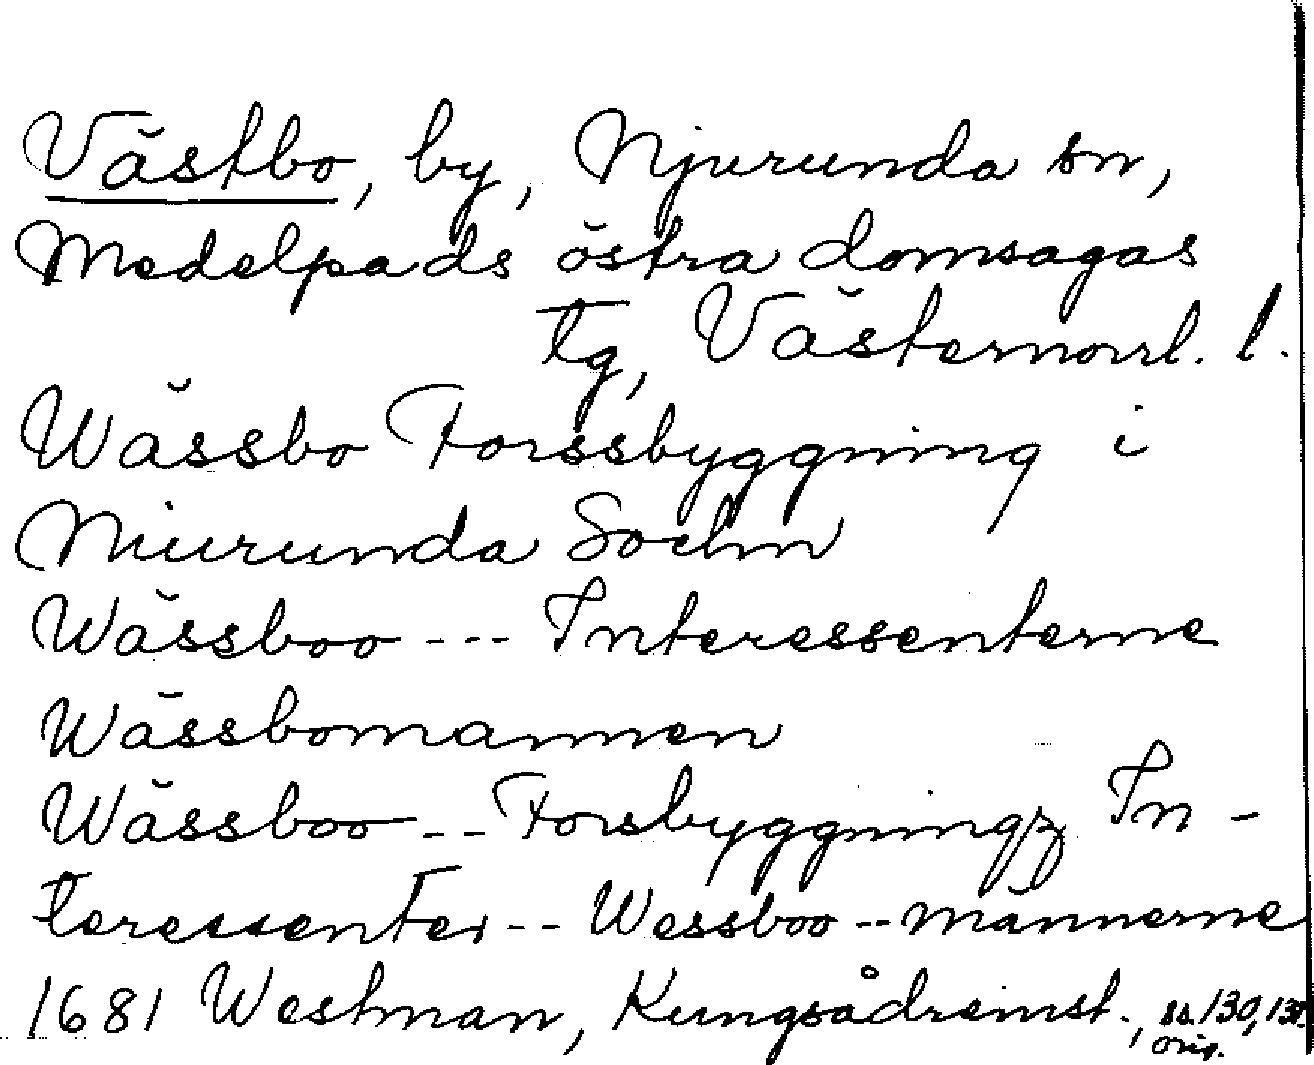 Västbo, by, Njurunda sn,
Medelpads östra domsagas
tg, Västernorrl. l.
Wässbo Forssbyggning i
Niurunda Sochn
Wässboo --- Interessenterne
Wässbomannen
Wässboo -- Forsbyggningz In-
teressenter -- Wessboo -- männerne
1681 Westman, Kungsådreinst., ss. 130,
orig.